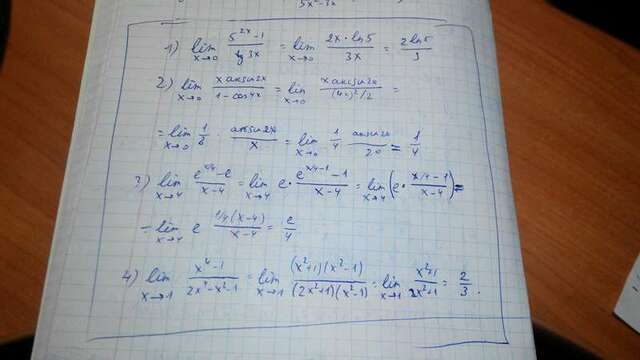 5x²-3x
1) lim x→0 (5^(2x) - 1)/(tg 3x) = lim x→0 (2x · ln5)/(3x) = 2ln5/3
2) lim x→0 (x arcsin 2x)/(1 - cos 4x) = lim x→0 (x arcsin 2x)/((4x)²/2) =
= lim x→0 1/8 · (arcsin 2x)/x = lim x→0 1/4 (arcsin 2x)/(2x) = 1/4
3) lim x→4 (e^(x/4) - e)/(x-4) = lim x→4 e · (e^(x/4-1) - 1)/(x-4) = lim x→4 (e · (x/4 - 1)/(x-4)) =
= lim x→4 e (1/4(x-4))/(x-4) = e/4
4) lim x→1 (x⁴-1)/(2x⁴-x²-1) = lim x→1 ((x²+1)(x²-1))/((2x²+1)(x²-1)) = lim x→1 (x²+1)/(2x²+1) = 2/3.